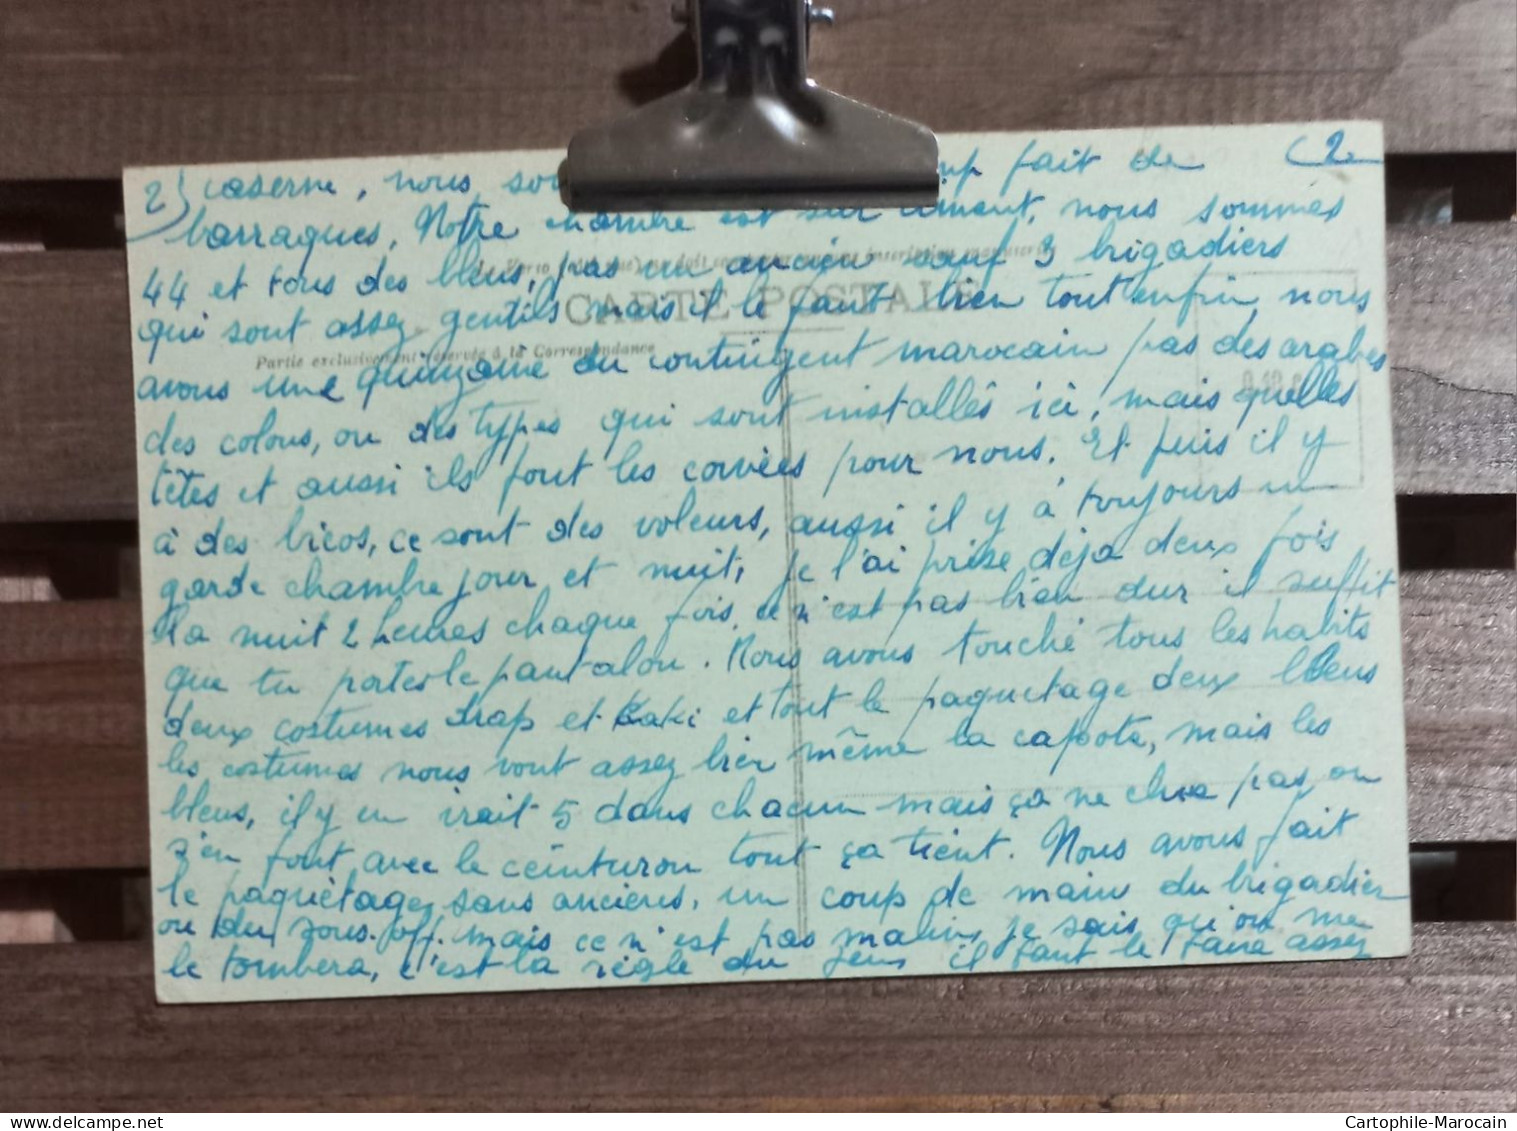 2) caserne, nous so fait de (2
barraques. Notre chambre est sur ciment, nous sommes
44 et tous des bleus, pas un ancien sauf 3 brigadiers
CARTE POSTALE
qui sont assez gentils mais il le faut bien tout enfin nous
Partie exclusivement réservée à la Correspondance
avons une quinzaine du contingent marocain pas des arabes
des colons, ou des types qui sont installés ici, mais quelles
têtes et aussi ils font les corvées pour nous. Et puis il y
à des bicos, ce sont des voleurs, aussi il y à toujours un
garde chambre jour et nuit, je l'ai prise déja deux fois
la nuit 2 heures chaque fois, ce n'est pas bien dur il suffit
que tu portes le pantalon. Nous avons touché tous les habits
deux costumes drap et Kaki et tout le paquetage deux bleus
les costumes nous vont assez bien même la capote, mais les
bleus, il y en irait 5 dans chacun mais ça ne chea pas on
s'en fout avec le ceinturon tout ça tient. Nous avons fait
le paquetage sans anciens, un coup de main du brigadier
ou du sous-off. mais ce n'est pas malin, je sais qu'on me
le tombera, c'est la règle du jeu il faut le faire assez
Cartophile-Marocain
www.delcampe.net